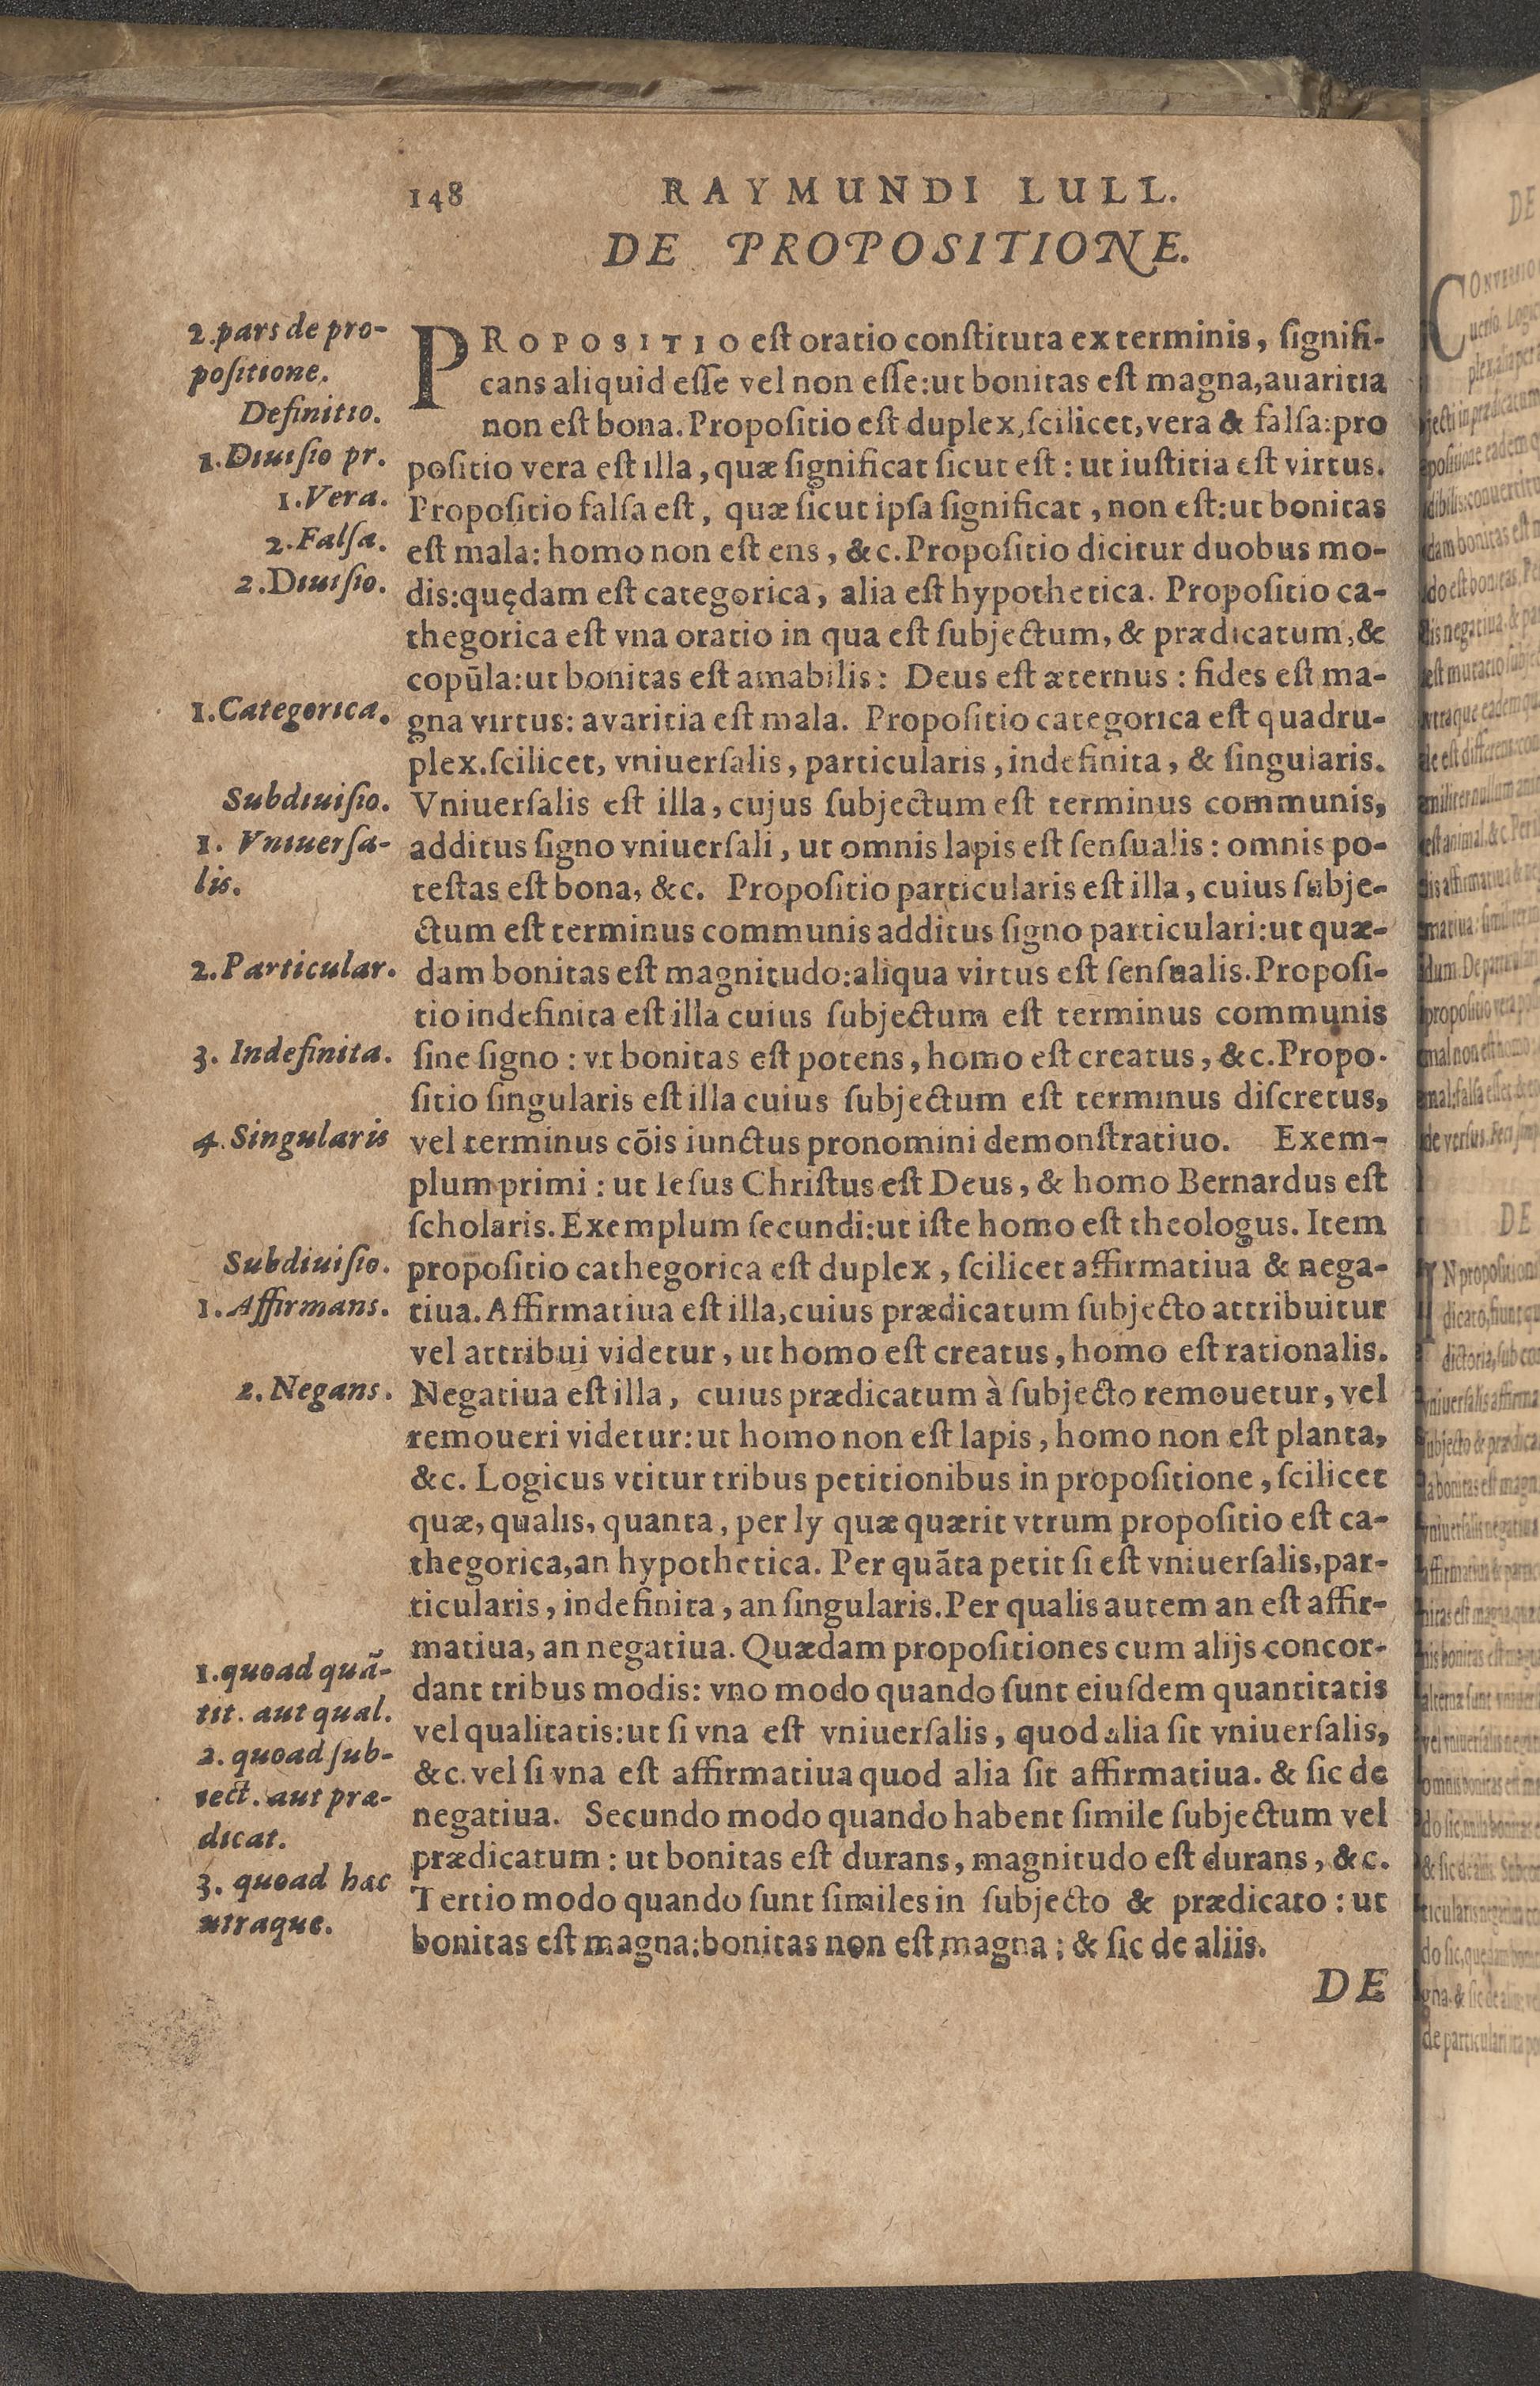 148
RAYMUNDI LULL.
DE PROPOSITIONE.
2.pars de pro-
poſitione.
Definitio.
1.Diuiſio pr.
1.Vera.
2.Falſa.
2.Diuiſio.
1.Categorica.
Subdiuiſio.
1. Vniuerſa-
lis.
2.Particular.
3. Indefinita.
4.Singularis
Subdiuiſio.
1.Affirmans.
2.Negans.
1.quoad quã-
tit. aut qual.
2. quoad ſub-
iect. aut præ-
dicat.
3. quoad hac
utraque.
PROPOSITIO eſt oratio conſtituta ex terminis, ſignifi-
cans aliquid eſſe vel non eſſe:ut bonitas eſt magna,auaritia
non eſt bona.Propoſitio eſt duplex,ſcilicet,vera & falſa:pro
poſitio vera eſt illa, quæ ſignificat ſicut eſt: ut iuſtitia eſt virtus.
Propoſitio falſa eſt, quæ ſicut ipſa ſignificat, non eſt:ut bonitas
eſt mala: homo non eſt ens, &c.Propoſitio dicitur duobus mo-
dis:quędam eſt categorica, alia eſt hypothetica. Propoſitio ca-
thegorica eſt vna oratio in qua eſt ſubjectum, & prædicatum,&
copūla:ut bonitas eſt amabilis: Deus eſt æternus: fides eſt ma-
gna virtus: avaritia eſt mala. Propoſitio categorica eſt quadru-
plex.ſcilicet, vniuerſalis, particularis, indefinita, & ſingularis.
Vniuerſalis eſt illa, cujus ſubjectum eſt terminus communis,
additus ſigno vniuerſali, ut omnis lapis eſt ſenſualis: omnis po-
teſtas eſt bona, &c. Propoſitio particularis eſt illa, cuius ſubje-
ctum eſt terminus communis additus ſigno particulari:ut quæ-
dam bonitas eſt magnitudo:aliqua virtus eſt ſenſualis.Propoſi-
tio indefinita eſt illa cuius ſubjectum eſt terminus communis
ſine ſigno: vt bonitas eſt potens, homo eſt creatus, &c.Propo-
ſitio ſingularis eſt illa cuius ſubjectum eſt terminus diſcretus,
vel terminus cõis iunctus pronomini demonſtratiuo. Exem-
plum primi: ut Ieſus Chriſtus eſt Deus, & homo Bernardus eſt
ſcholaris.Exemplum ſecundi:ut iſte homo eſt theologus. Item
propoſitio cathegorica eſt duplex, ſcilicet affirmatiua & nega-
tiua.Affirmatiua eſt illa,cuius prædicatum ſubjecto attribuitur
vel attribui videtur, ut homo eſt creatus, homo eſt rationalis.
Negatiua eſt illa, cuius prædicatum à ſubjecto remouetur, vel
remoueri videtur:ut homo non eſt lapis, homo non eſt planta,
&c. Logicus vtitur tribus petitionibus in propoſitione, ſcilicet
quæ, qualis, quanta, per ly quæ quærit vtrum propoſitio eſt ca-
thegorica,an hypothetica. Per quãta petit ſi eſt vniuerſalis,par-
ticularis, indefinita, an ſingularis.Per qualis autem an eſt affir-
matiua, an negatiua. Quædam propoſitiones cum alijs concor-
dant tribus modis: vno modo quando ſunt eiuſdem quantitatis
vel qualitatis:ut ſi vna eſt vniuerſalis, quod alia ſit vniuerſalis,
&c. vel ſi vna eſt affirmatiua quod alia ſit affirmatiua. & ſic de
negatiua. Secundo modo quando habent ſimile ſubjectum vel
prædicatum: ut bonitas eſt durans, magnitudo eſt durans, &c.
Tertio modo quando ſunt ſimiles in ſubjecto & prædicato: ut
bonitas eſt magna:bonitas non eſt magna; & ſic de aliis.
DE